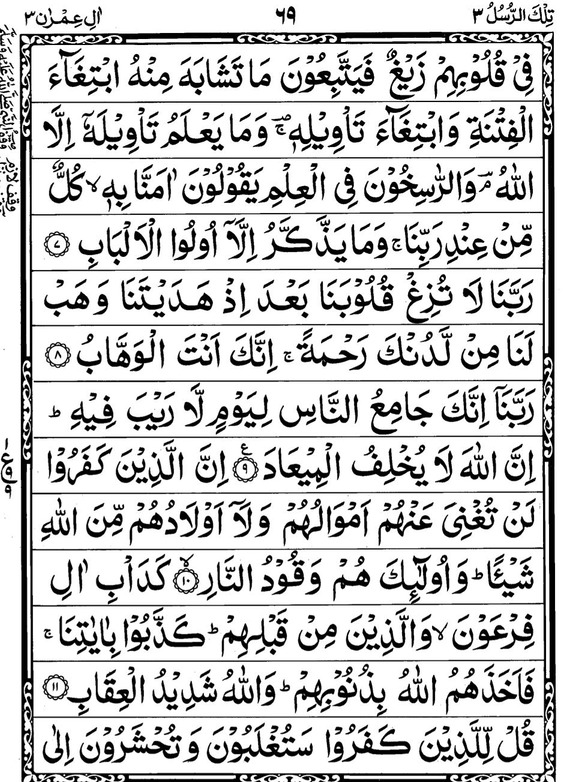 تِلْكَ الرُّسُلُ ٣
٦٩
اٰلِ عِمْرٰن ٣
فِيْ قُلُوْبِهِمْ زَيْغٌ فَيَتَّبِعُوْنَ مَا تَشَابَهَ مِنْهُ ابْتِغَآءَ
الْفِتْنَةِ وَابْتِغَآءَ تَاْوِيْلِهٖ ۚ وَمَا يَعْلَمُ تَاْوِيْلَهٗٓ اِلَّا
اللّٰهُ ۘ وَالرّٰسِخُوْنَ فِي الْعِلْمِ يَقُوْلُوْنَ اٰمَنَّا بِهٖ ۙ كُلٌّ
مِّنْ عِنْدِ رَبِّنَا ۚ وَمَا يَذَّكَّرُ اِلَّآ اُولُوا الْاَلْبَابِ ٧
رَبَّنَا لَا تُزِغْ قُلُوْبَنَا بَعْدَ اِذْ هَدَيْتَنَا وَهَبْ
لَنَا مِنْ لَّدُنْكَ رَحْمَةً ۚ اِنَّكَ اَنْتَ الْوَهَّابُ ٨
رَبَّنَآ اِنَّكَ جَامِعُ النَّاسِ لِيَوْمٍ لَّا رَيْبَ فِيْهِ ؕ
اِنَّ اللّٰهَ لَا يُخْلِفُ الْمِيْعَادَ ٩ اِنَّ الَّذِيْنَ كَفَرُوْا
لَنْ تُغْنِيَ عَنْهُمْ اَمْوَالُهُمْ وَلَآ اَوْلَادُهُمْ مِّنَ اللّٰهِ
شَيْئًا ؕ وَاُولٰٓئِكَ هُمْ وَقُوْدُ النَّارِ ١٠ كَدَاْبِ اٰلِ
فِرْعَوْنَ ۙ وَالَّذِيْنَ مِنْ قَبْلِهِمْ ؕ كَذَّبُوْا بِاٰيٰتِنَا ۚ
فَاَخَذَهُمُ اللّٰهُ بِذُنُوْبِهِمْ ؕ وَاللّٰهُ شَدِيْدُ الْعِقَابِ ١١
قُلْ لِّلَّذِيْنَ كَفَرُوْا سَتُغْلَبُوْنَ وَتُحْشَرُوْنَ اِلٰى
وقف لازم
ع
٩